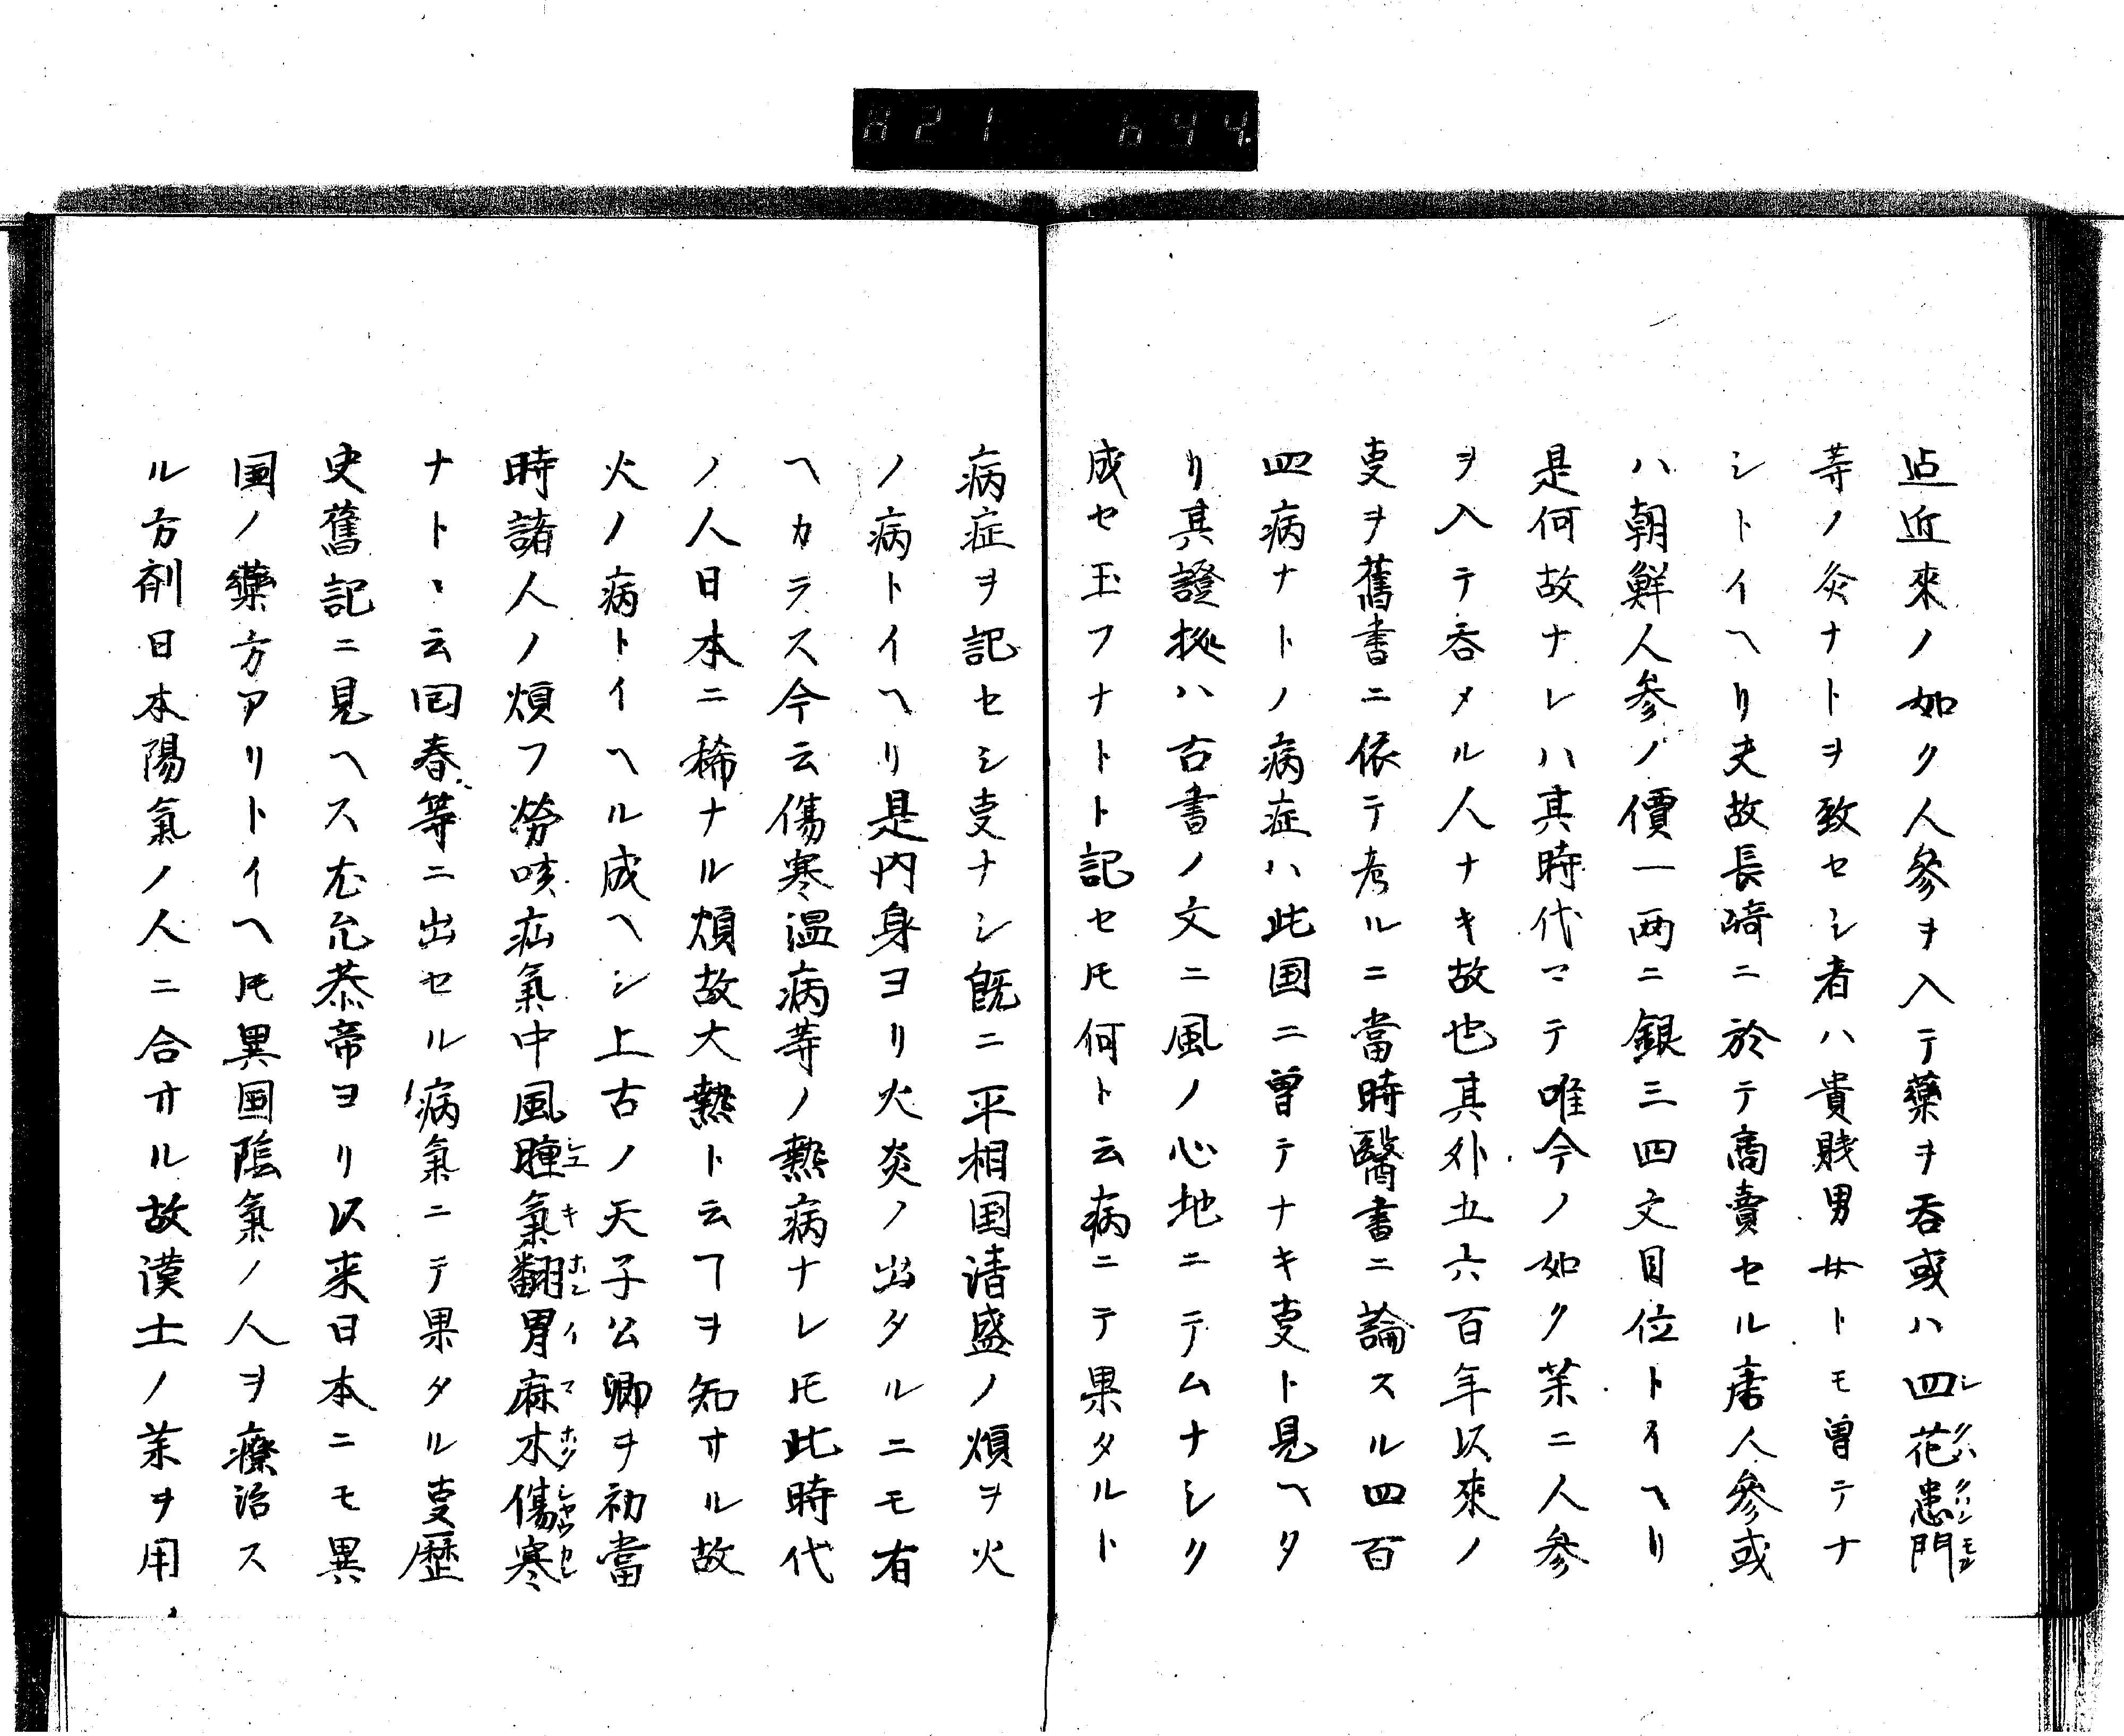 821 644.
迠近來ノ如ク人參ヲ入テ藥ヲ呑或ハ四花患門
等ノ灸ナトヲ致セシ者ハ貴賎男女トモ曽テナ
シトイヘリ夫故長﨑ニ於テ商賣セル唐人參或
ハ朝鮮人參ノ價一两ニ銀三四文目位トイヘリ
是何故ナレハ其時代マテ唯今ノ如ク茱ニ人参
ヲ入テ呑メル人ナキ故也其外五六百年以來ノ
叓ヲ舊書ニ依テ考ルニ當時醫書ニ論スル四百
四病ナトノ病症ハ此国ニ曽テナキ叓ト見ヘタ
リ其證拠ハ古書ノ文ニ風ノ心地ニテムナシク
成セ玉フナトト記セ𪜈何ト云病ニテ果タルト
病症ヲ記セシ叓ナシ既ニ平相国清盛ノ煩ヲ火
ノ病トイヘリ是内身ヨリ火炎ノ出タルニモ有
ヘカラス今云傷寒温病等ノ熱病ナレ𪜈此時代
ノ人日本ニ稀ナル煩故大熱ト云ヿヲ知サル故
火ノ病トイヘル成ヘシ上古ノ天子公卿ヲ初當
時諸人ノ煩フ勞咳疝氣中風腫氣翻胃麻木傷寒
ナトヽ云回春等ニ出セル病氣ニテ果タル叓歴
史舊記ニ見ヘス尤允恭帝ヨリ以来日本ニモ異
国ノ藥方アリトイヘ𪜈異国陰氣ノ人ヲ療治ス
ル方剤日本陽氣ノ人ニ合サル故漢土ノ茱ヲ用